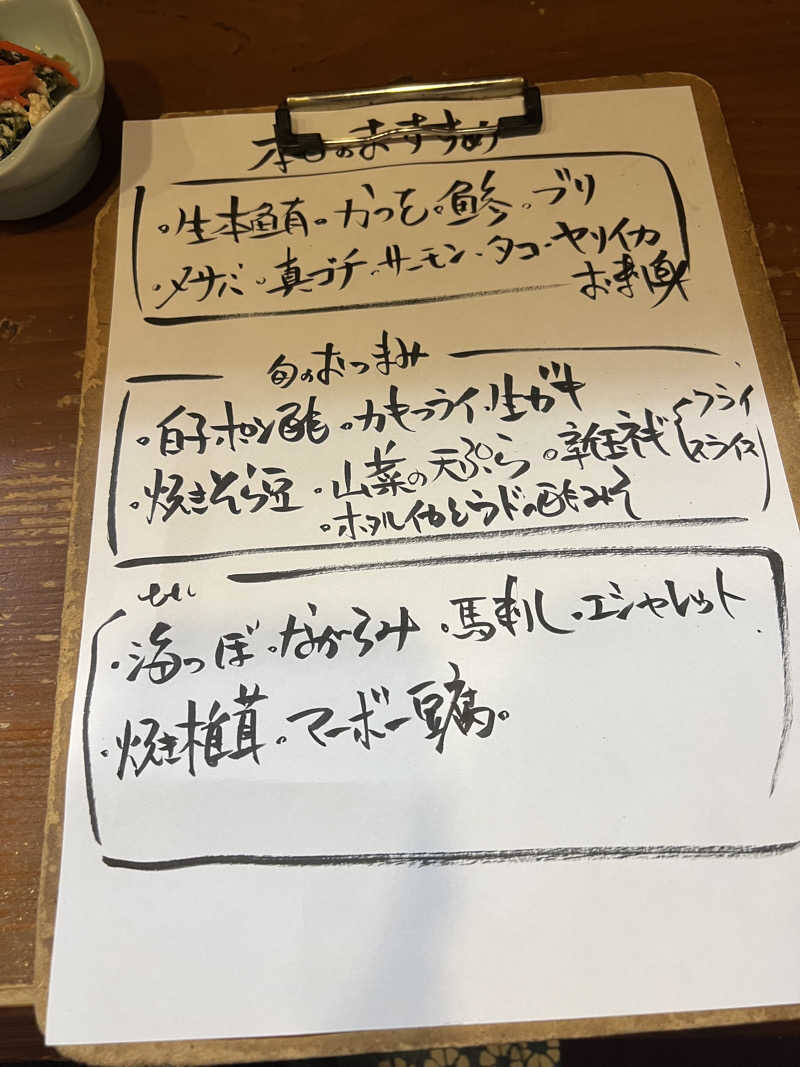 本日のおすすめ
・生本鮪・かつを・鯵・ブリ
・〆サバ・真ゴチ・サーモン・タコ・ヤリイカ
お刺身
旬のおつまみ
・白子ポン酢・カキフライ・生ガキ
・焼きそら豆・山菜の天ぷら・新玉ネギ フライ スライス
・ホタルイカとウドの酢みそ
・海つぼ・ながらみ・馬刺し・エシャレット
・焼き椎茸・マーボー豆腐。